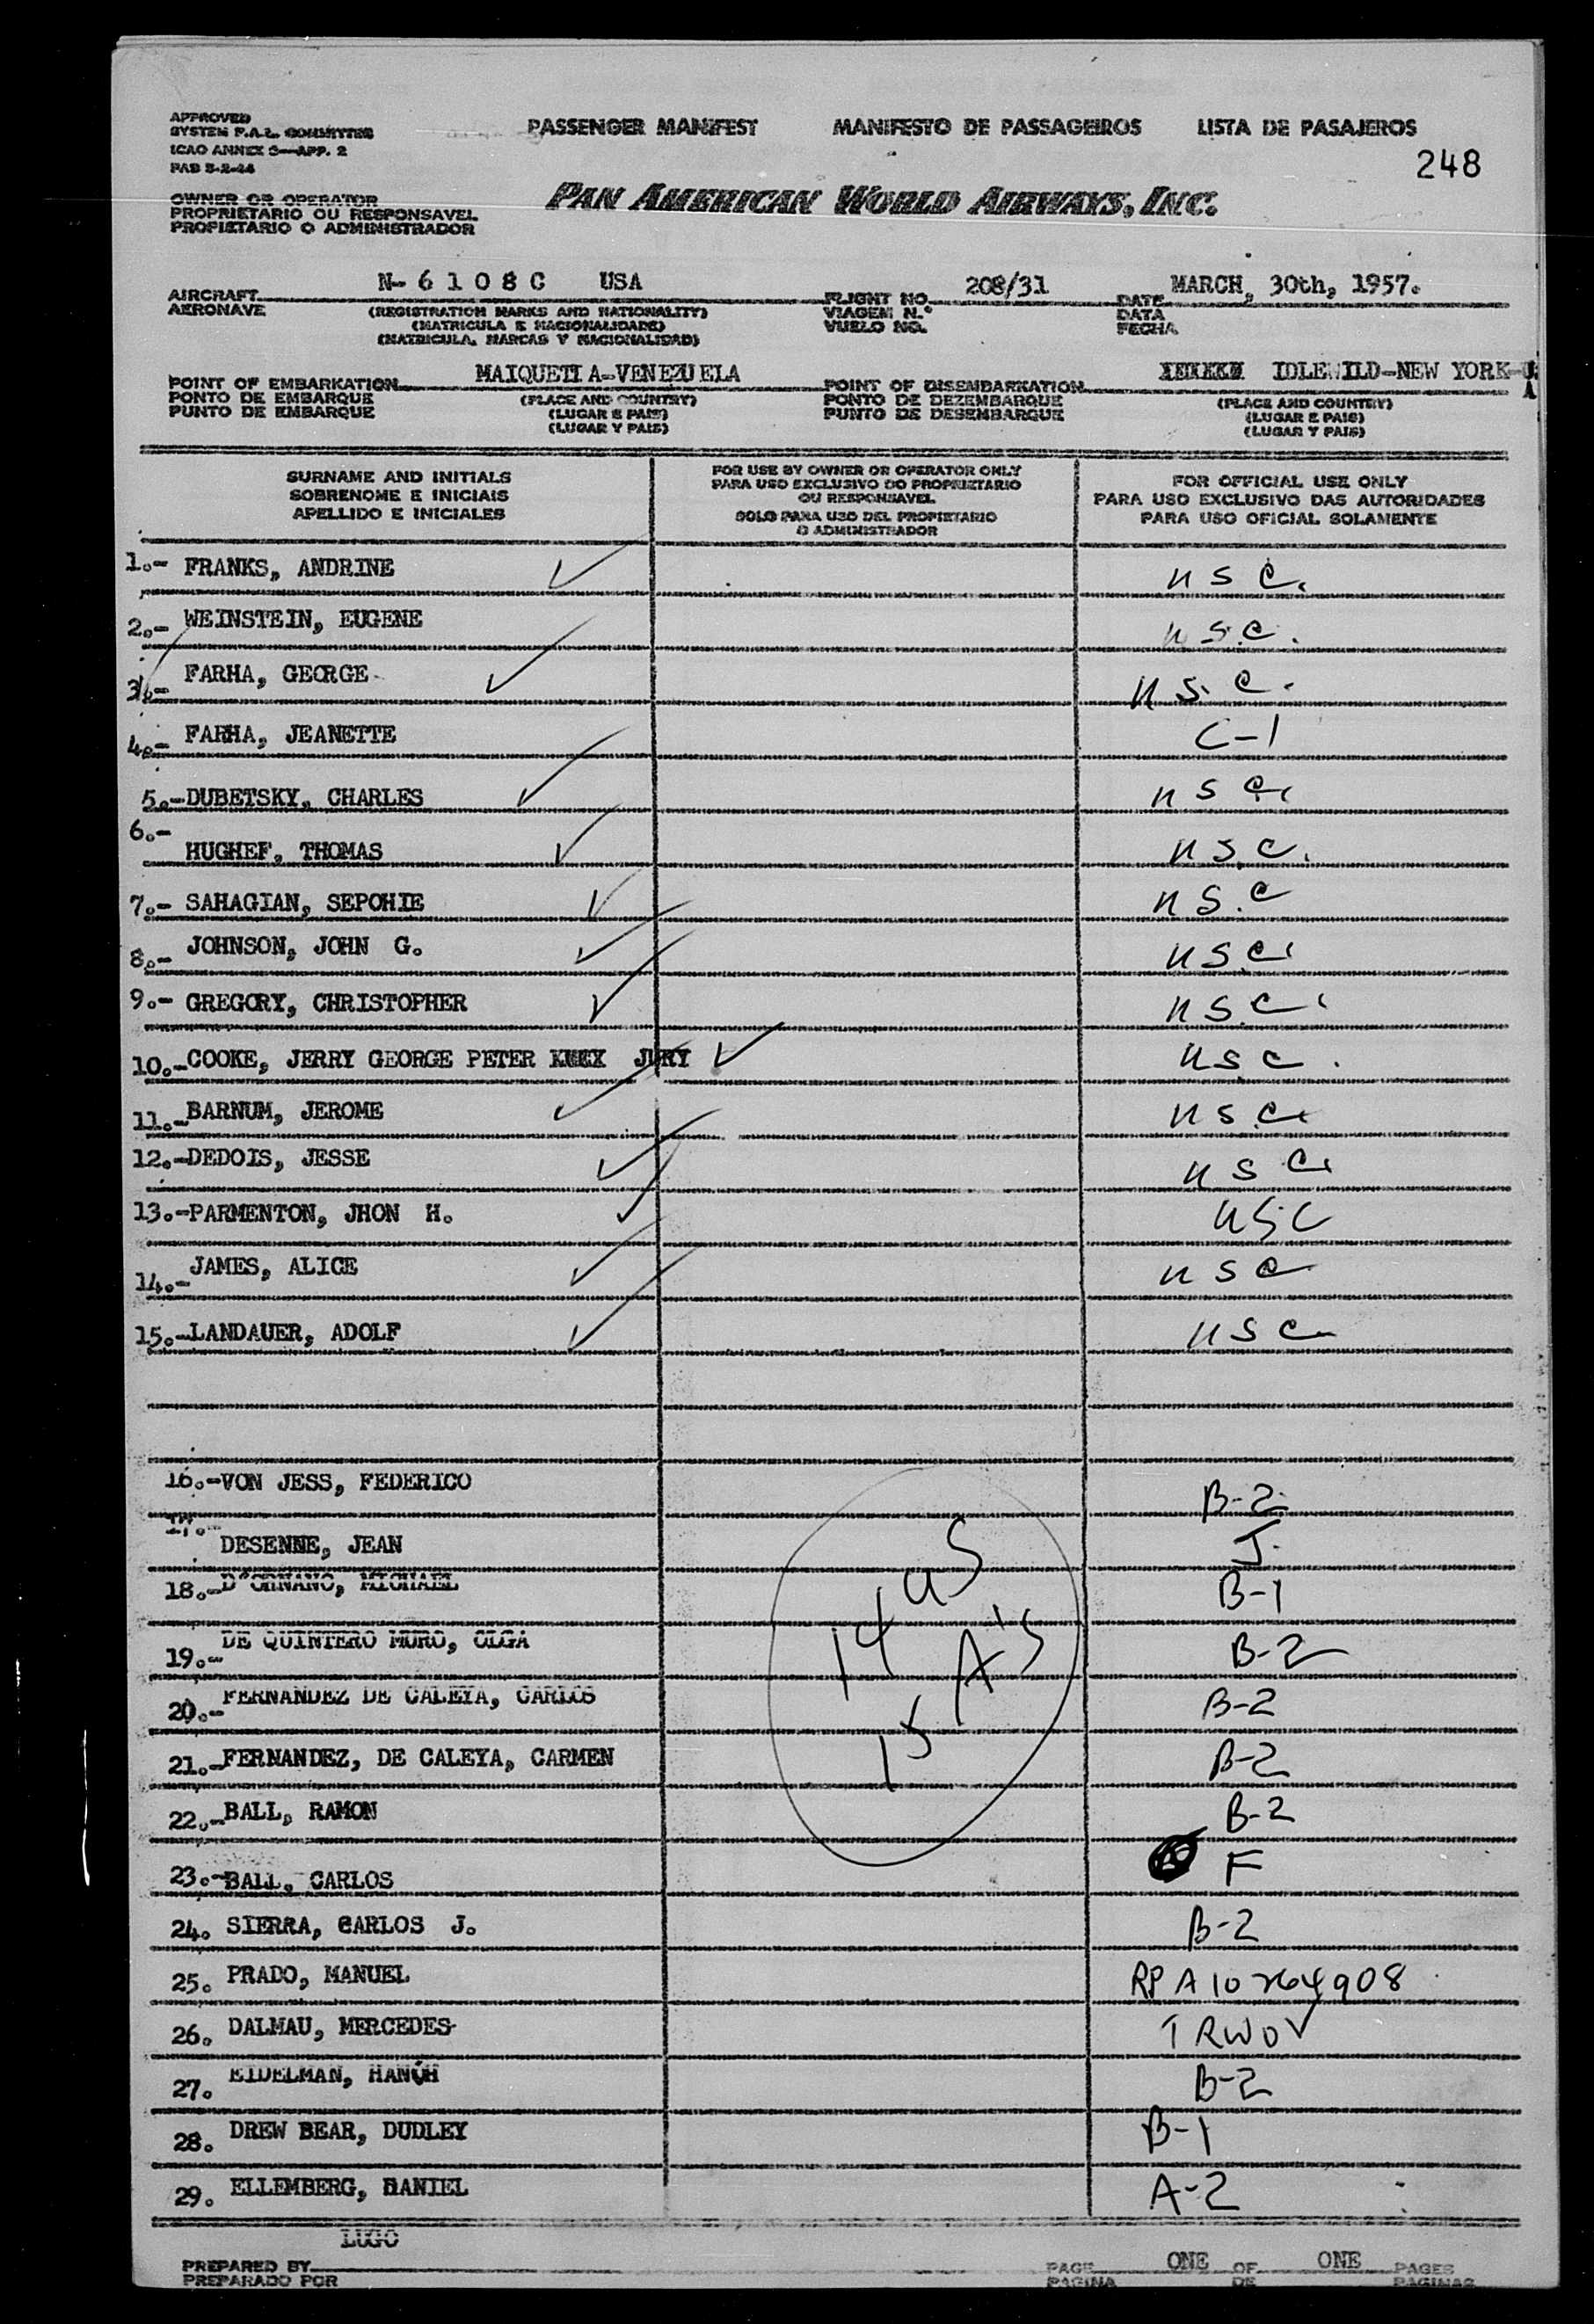 APPROVED
SYSTEM F.A.L. COMMITTEE
ICAO ANNEX 9—APP. 2
PAB 5-2-44
PASSENGER MANIFEST MANIFESTO DE PASSAGEIROS LISTA DE PASAJEROS
248
OWNER OR OPERATOR
PROPRIETARIO OU RESPONSAVEL
PROPIETARIO O ADMINISTRADOR
PAN AMERICAN WORLD AIRWAYS, INC.
N-6108C USA 208/31 MARCH, 30th, 1957.
AIRCRAFT FLIGHT NO. DATE
AERONAVE VIAGEM N.° DATA
VUELO NO. FECHA
(REGISTRATION MARKS AND NATIONALITY)
(MATRICULA E NACIONALIDADE)
(MATRICULA, MARCAS Y NACIONALIDAD)
MAIQUETIA-VENEZUELA IDLEWILD-NEW YORK-U
A
POINT OF EMBARKATION POINT OF DISEMBARKATION
PONTO DE EMBARQUE PONTO DE DEZEMBARQUE
PUNTO DE EMBARQUE PUNTO DE DESEMBARQUE
(PLACE AND COUNTRY) (PLACE AND COUNTRY)
(LUGAR E PAIS) (LUGAR E PAIS)
(LUGAR Y PAIS) (LUGAR Y PAIS)
SURNAME AND INITIALS
SOBRENOME E INICIAIS
APELLIDO E INICIALES
FOR USE BY OWNER OR OPERATOR ONLY
PARA USO EXCLUSIVO DO PROPRIETARIO
OU RESPONSAVEL
SOLO PARA USO DEL PROPIETARIO
O ADMINISTRADOR
FOR OFFICIAL USE ONLY
PARA USO EXCLUSIVO DAS AUTORIDADES
PARA USO OFICIAL SOLAMENTE
1.- FRANKS, ANDRINE USC.
2.- WEINSTEIN, EUGENE USC.
3.- FARHA, GEORGE USC.
4.- FARHA, JEANETTE C-1
5.- DUBETSKY, CHARLES USC.
6.- HUGHEF, THOMAS USC.
7.- SAHAGIAN, SEPOHIE USC
8.- JOHNSON, JOHN G. USC.
9.- GREGORY, CHRISTOPHER USC.
10.- COOKE, JERRY GEORGE PETER JURY USC.
11.- BARNUM, JEROME USC.
12.- DEDOIS, JESSE USC.
13.- PARMENTON, JHON H. USC
14.- JAMES, ALICE USC
15.- LANDAUER, ADOLF USC
16.- VON JESS, FEDERICO B-2
17.- DESENNE, JEAN J.
18.- D'ORNANO, MICHAEL B-1
19.- DE QUINTERO MORO, OLGA B-2
20.- FERNANDEZ DE CALEYA, CARLOS B-2
21.- FERNANDEZ, DE CALEYA, CARMEN B-2
22.- BALL, RAMON B-2
23.- BALL, CARLOS F
24. SIERRA, CARLOS J. B-2
25. PRADO, MANUEL RP A10764908
26. DALMAU, MERCEDES TRWOV
27. EIDELMAN, HANUH B-2
28. DREW BEAR, DUDLEY B-1
29. ELLEMBERG, DANIEL A-2
14 US
15 A'S
LUGO
PREPARED BY PAGE ONE OF ONE PAGES
PREPARADO POR PAGINA DE PAGINAS